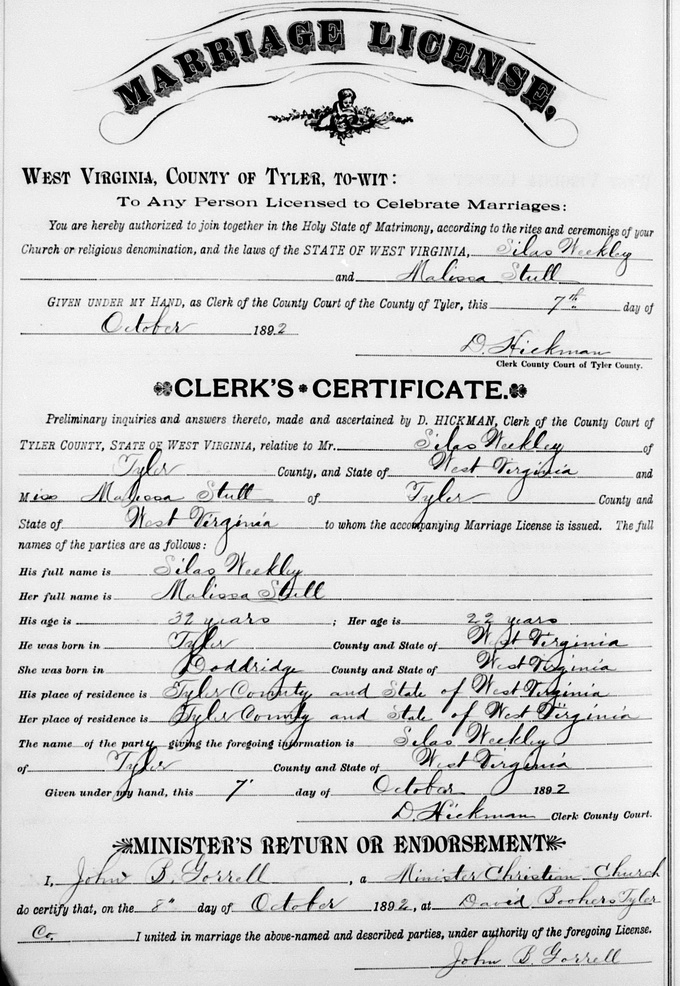 MARRIAGE LICENSE,
WEST VIRGINIA, COUNTY OF TYLER, TO-WIT:
To Any Person Licensed to Celebrate Marriages:
You are hereby authorized to join together in the Holy State of Matrimony, according to the rites and ceremonies of your
Church or religious denomination, and the laws of the STATE OF WEST VIRGINIA, Silas Weekley
and Malissa Stull
GIVEN UNDER MY HAND, as Clerk of the County Court of the County of Tyler, this 7th day of
October 1892
D. Hickman
Clerk County Court of Tyler County.
CLERK'S CERTIFICATE.
Preliminary inquiries and answers thereto, made and ascertained by D. HICKMAN, Clerk of the County Court of
TYLER COUNTY, STATE OF WEST VIRGINIA, relative to Mr. Silas Weekley of
Tyler County, and State of West Virginia and
Miss Malissa Stull of Tyler County and
State of West Virginia to whom the accompanying Marriage License is issued. The full
names of the parties are as follows:
His full name is Silas Weekley
Her full name is Malissa Stull
His age is 32 years ; Her age is 22 years
He was born in Tyler County and State of West Virginia
She was born in Doddridge County and State of West Virginia
His place of residence is Tyler County and State of West Virginia
Her place of residence is Tyler County and State of West Virginia
The name of the party giving the foregoing information is Silas Weekley
of Tyler County and State of West Virginia
Given under my hand, this 7" day of October 1892
D. Hickman Clerk County Court.
MINISTER'S RETURN OR ENDORSEMENT
I, John B. Gorrell, a Minister Christian Church
do certify that, on the 8" day of October 1892, at David Boohers Tyler
Co. I united in marriage the above-named and described parties, under authority of the foregoing License.
John B. Gorrell